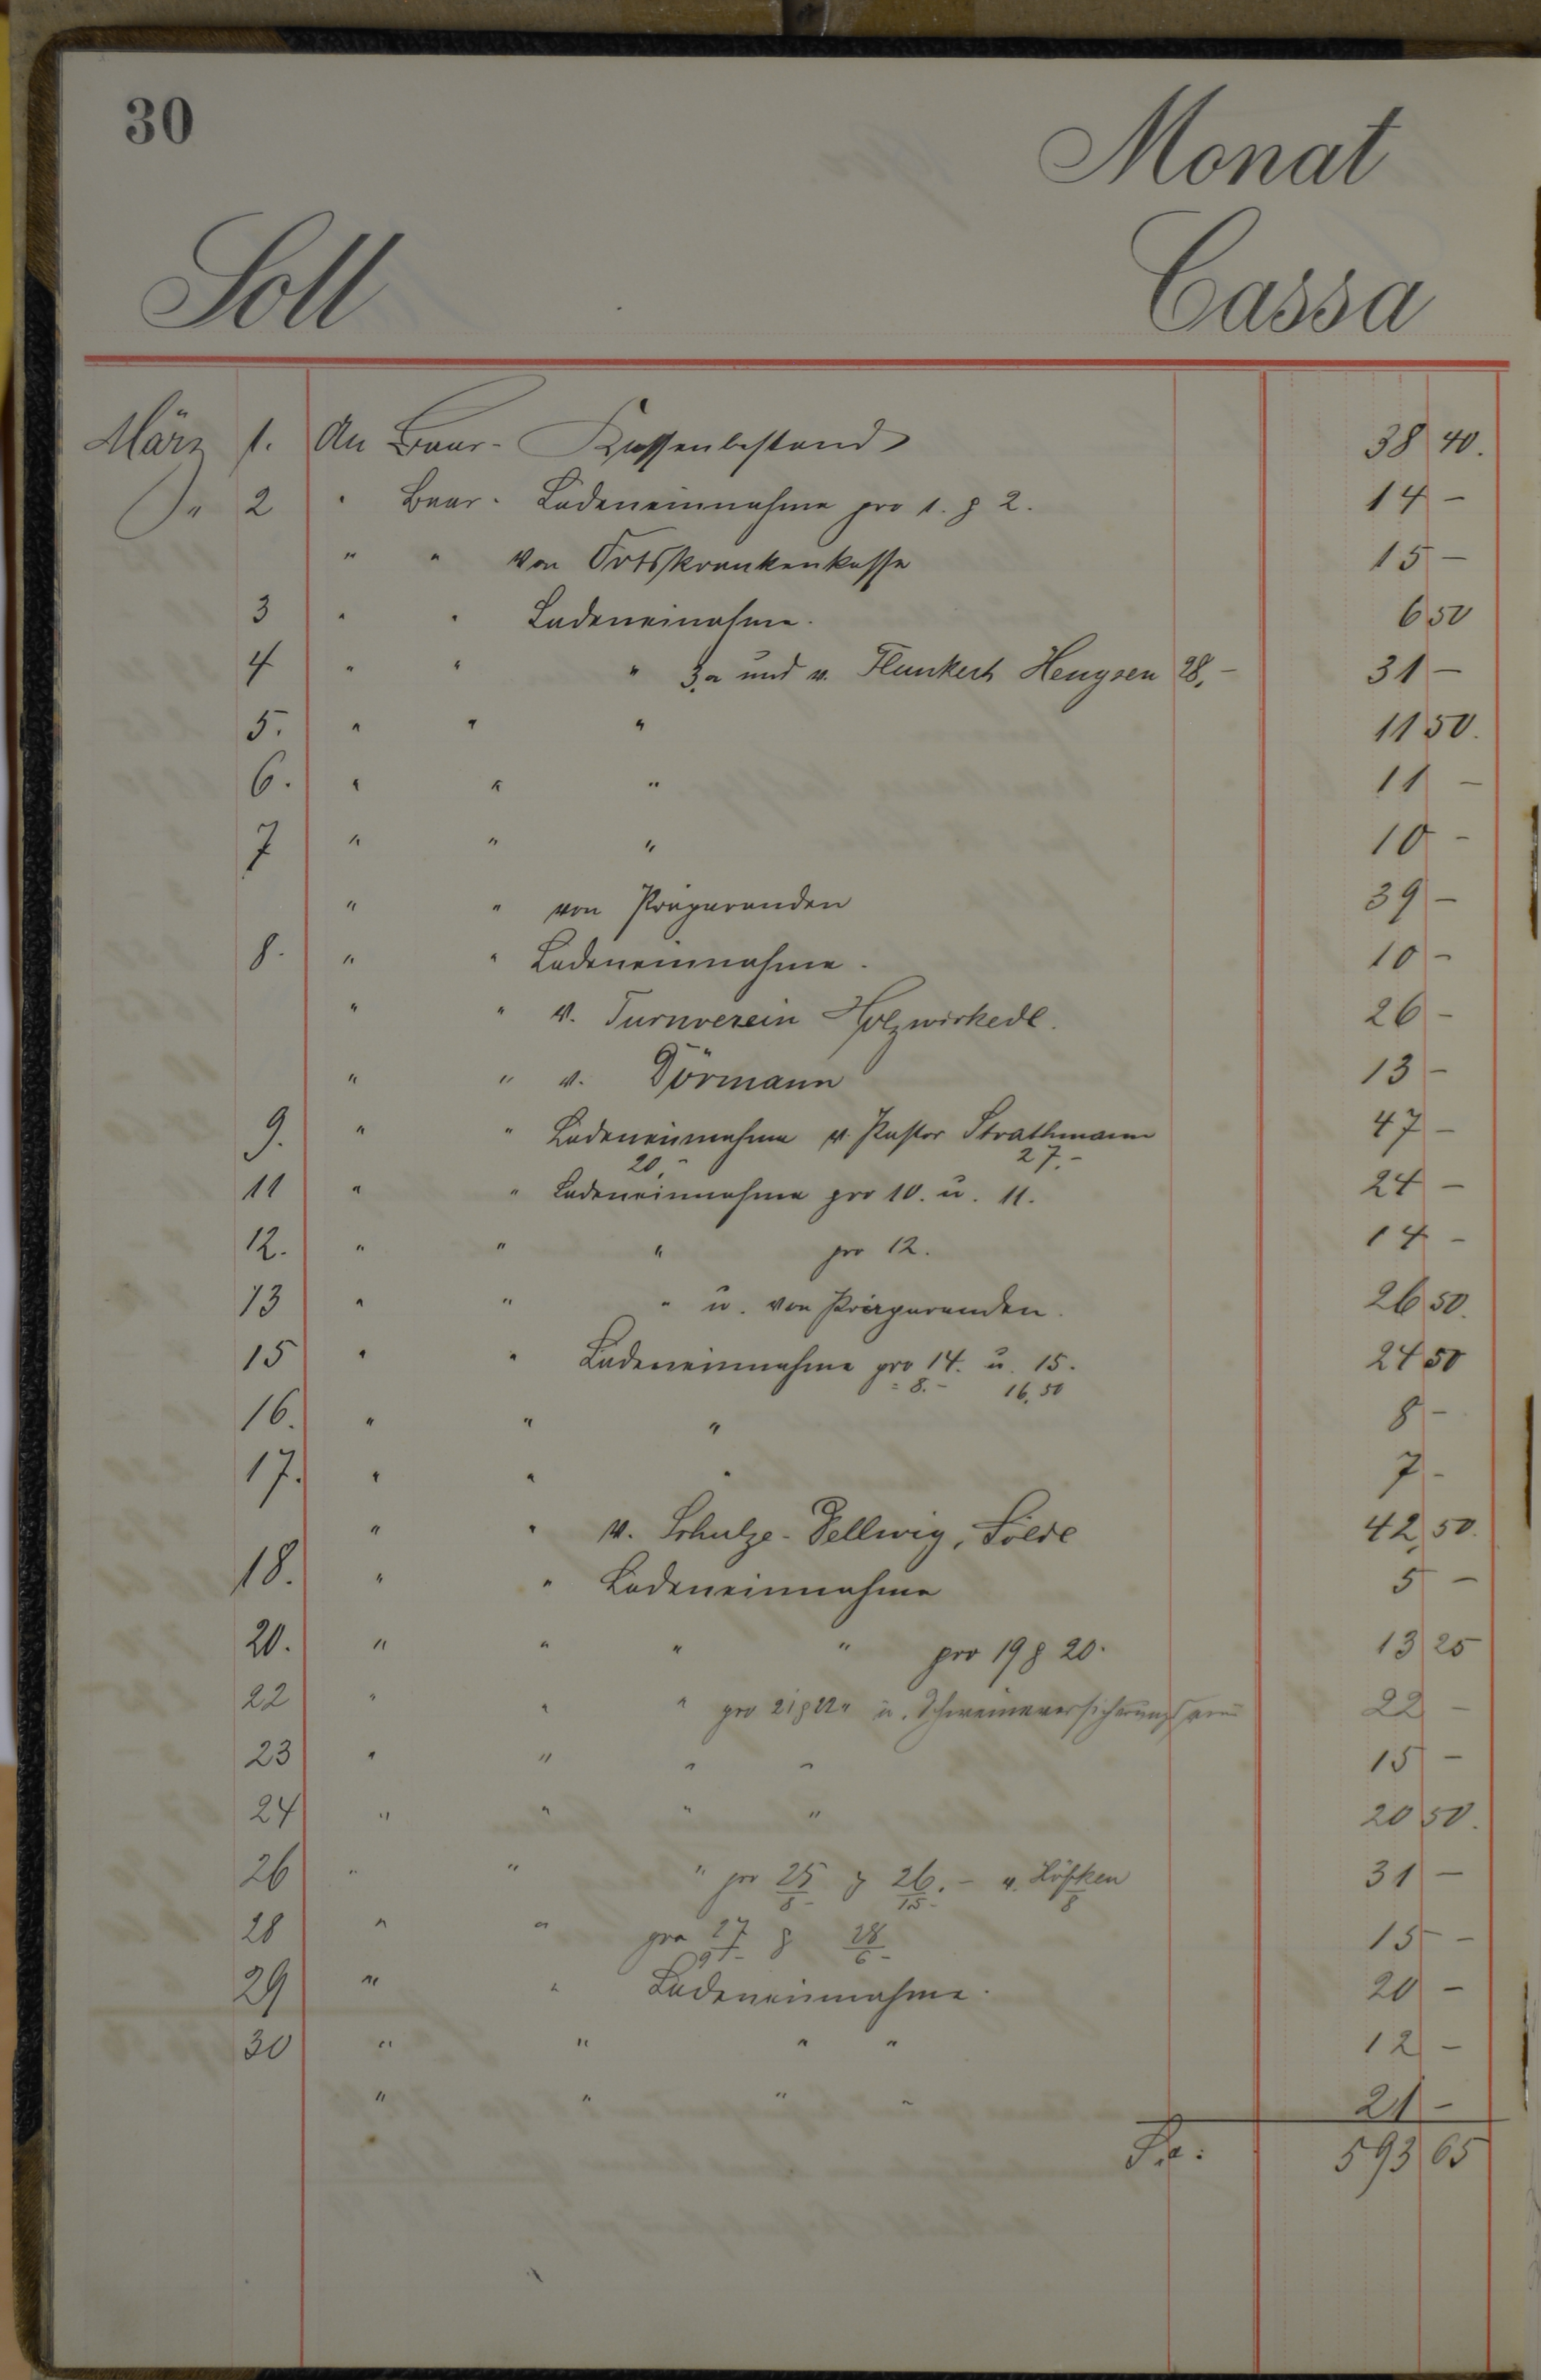 30
Monat
Soll
Cassa
März 1. An Baar- Kassenbestand 38 40.
2 " Baar- Ladeneinnahme pro 1. & 2. 14 -
" " Von Ortskrankenkasse 15 -
3 " " Ladeneinahme. 6 50
4 " " " 3.- und v. Flunkert Hengsen 28,- 31 -
5. " " " 11 50.
6. " " " 11 -
7 " " " 10 -
" " von Präparanden 39 -
8. " " Ladeneinnahme. 10 -
" " v. Turnverein Holzwickede. 26 -
" " v. Dörmann 13 -
9. " " Ladeneinnahme v. Pastor Strathmann 47 -
20,- 27.-
11 " " Ladeneinnahme pro 10. u. 11. 24 -
12. " " " pro 12. 14 -
13 " " " u. von Präparanden. 26 50.
15 " " Ladeneinnahme pro 14. u. 15. 24 50
8.- 16,50
16. " " " 8 -
17. " " " 7 -
" " v. Schulze-Dellwig, Sölde 42,50.
18. " " Ladeneinnahme 5 -
20. " " " " pro 19 & 20. 13 25
22 " " " pro 21 & 22 u. Schweineversicherung 22 -
23 " " " " 15 -
24 " " " " 20 50.
26 " " " pro 25 & 26.- v. Löfken 31 -
8- 15- 8
28 " " pro 27. & 28 15 -
9.- 6-
29 " " Ladeneinnahme. 20 -
30 " " " " 12 -
" " " " 21 -
593 65